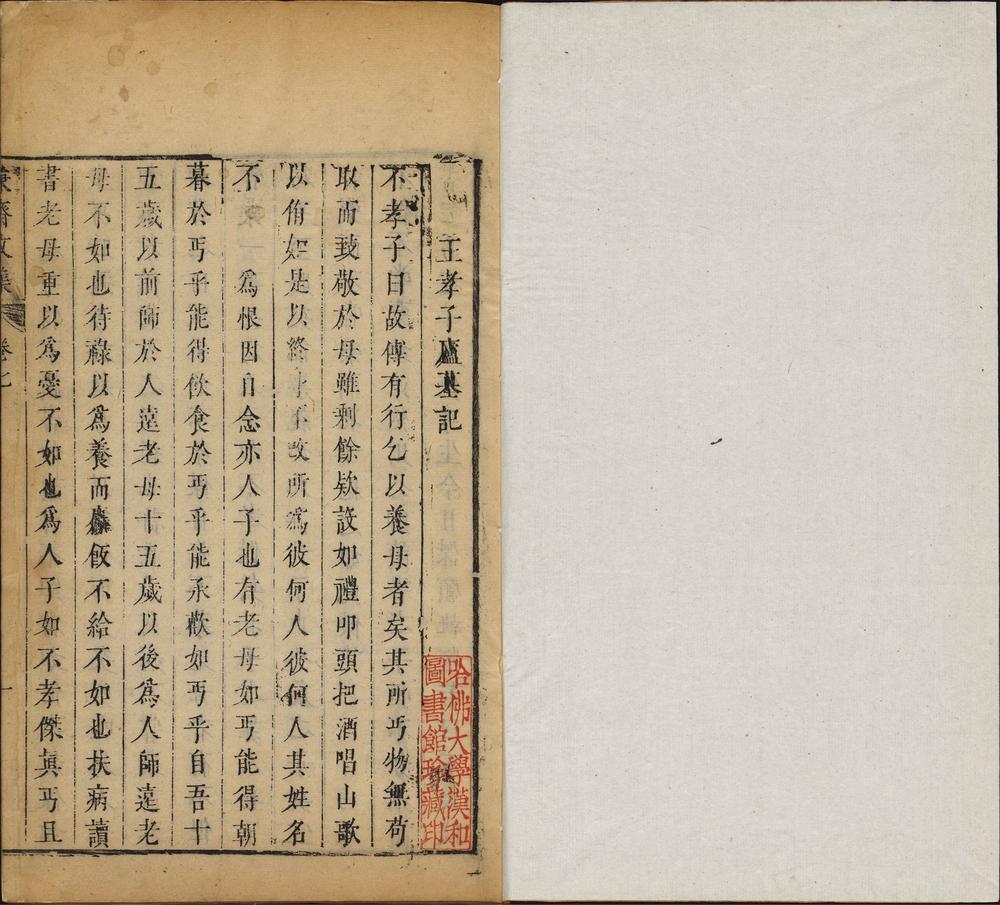 王孝子廬墓記
不孝子曰故傳有行乞以養母者矣其所丐物無苟
取而致敬於母雖剩餘欵設如禮叩頭把酒唱山歌
以侑如是以終 不改所為彼何人彼何人其姓名
不 為恨因自念亦人子也有老母如丐能得朝
暮於丐乎能得飲食於丐乎能承歡如丐乎自吾十
五歲以前師於人遠老母十五歲以後為人師遠老
母不如也待祿以為養而麤飯不給不如也扶病讀
書老母重以為憂不如也為人子如不孝傑真丐且
兼濟文集 卷七 一
哈佛大學漢和
圖書館珍藏印